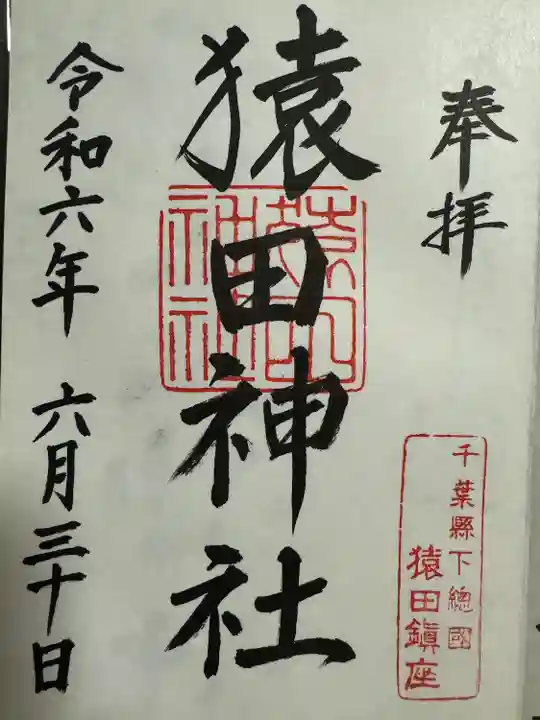 奉拝
千葉縣下總國
猿田鎭座
猿田神社
猿田神社
令和六年 六月三十日